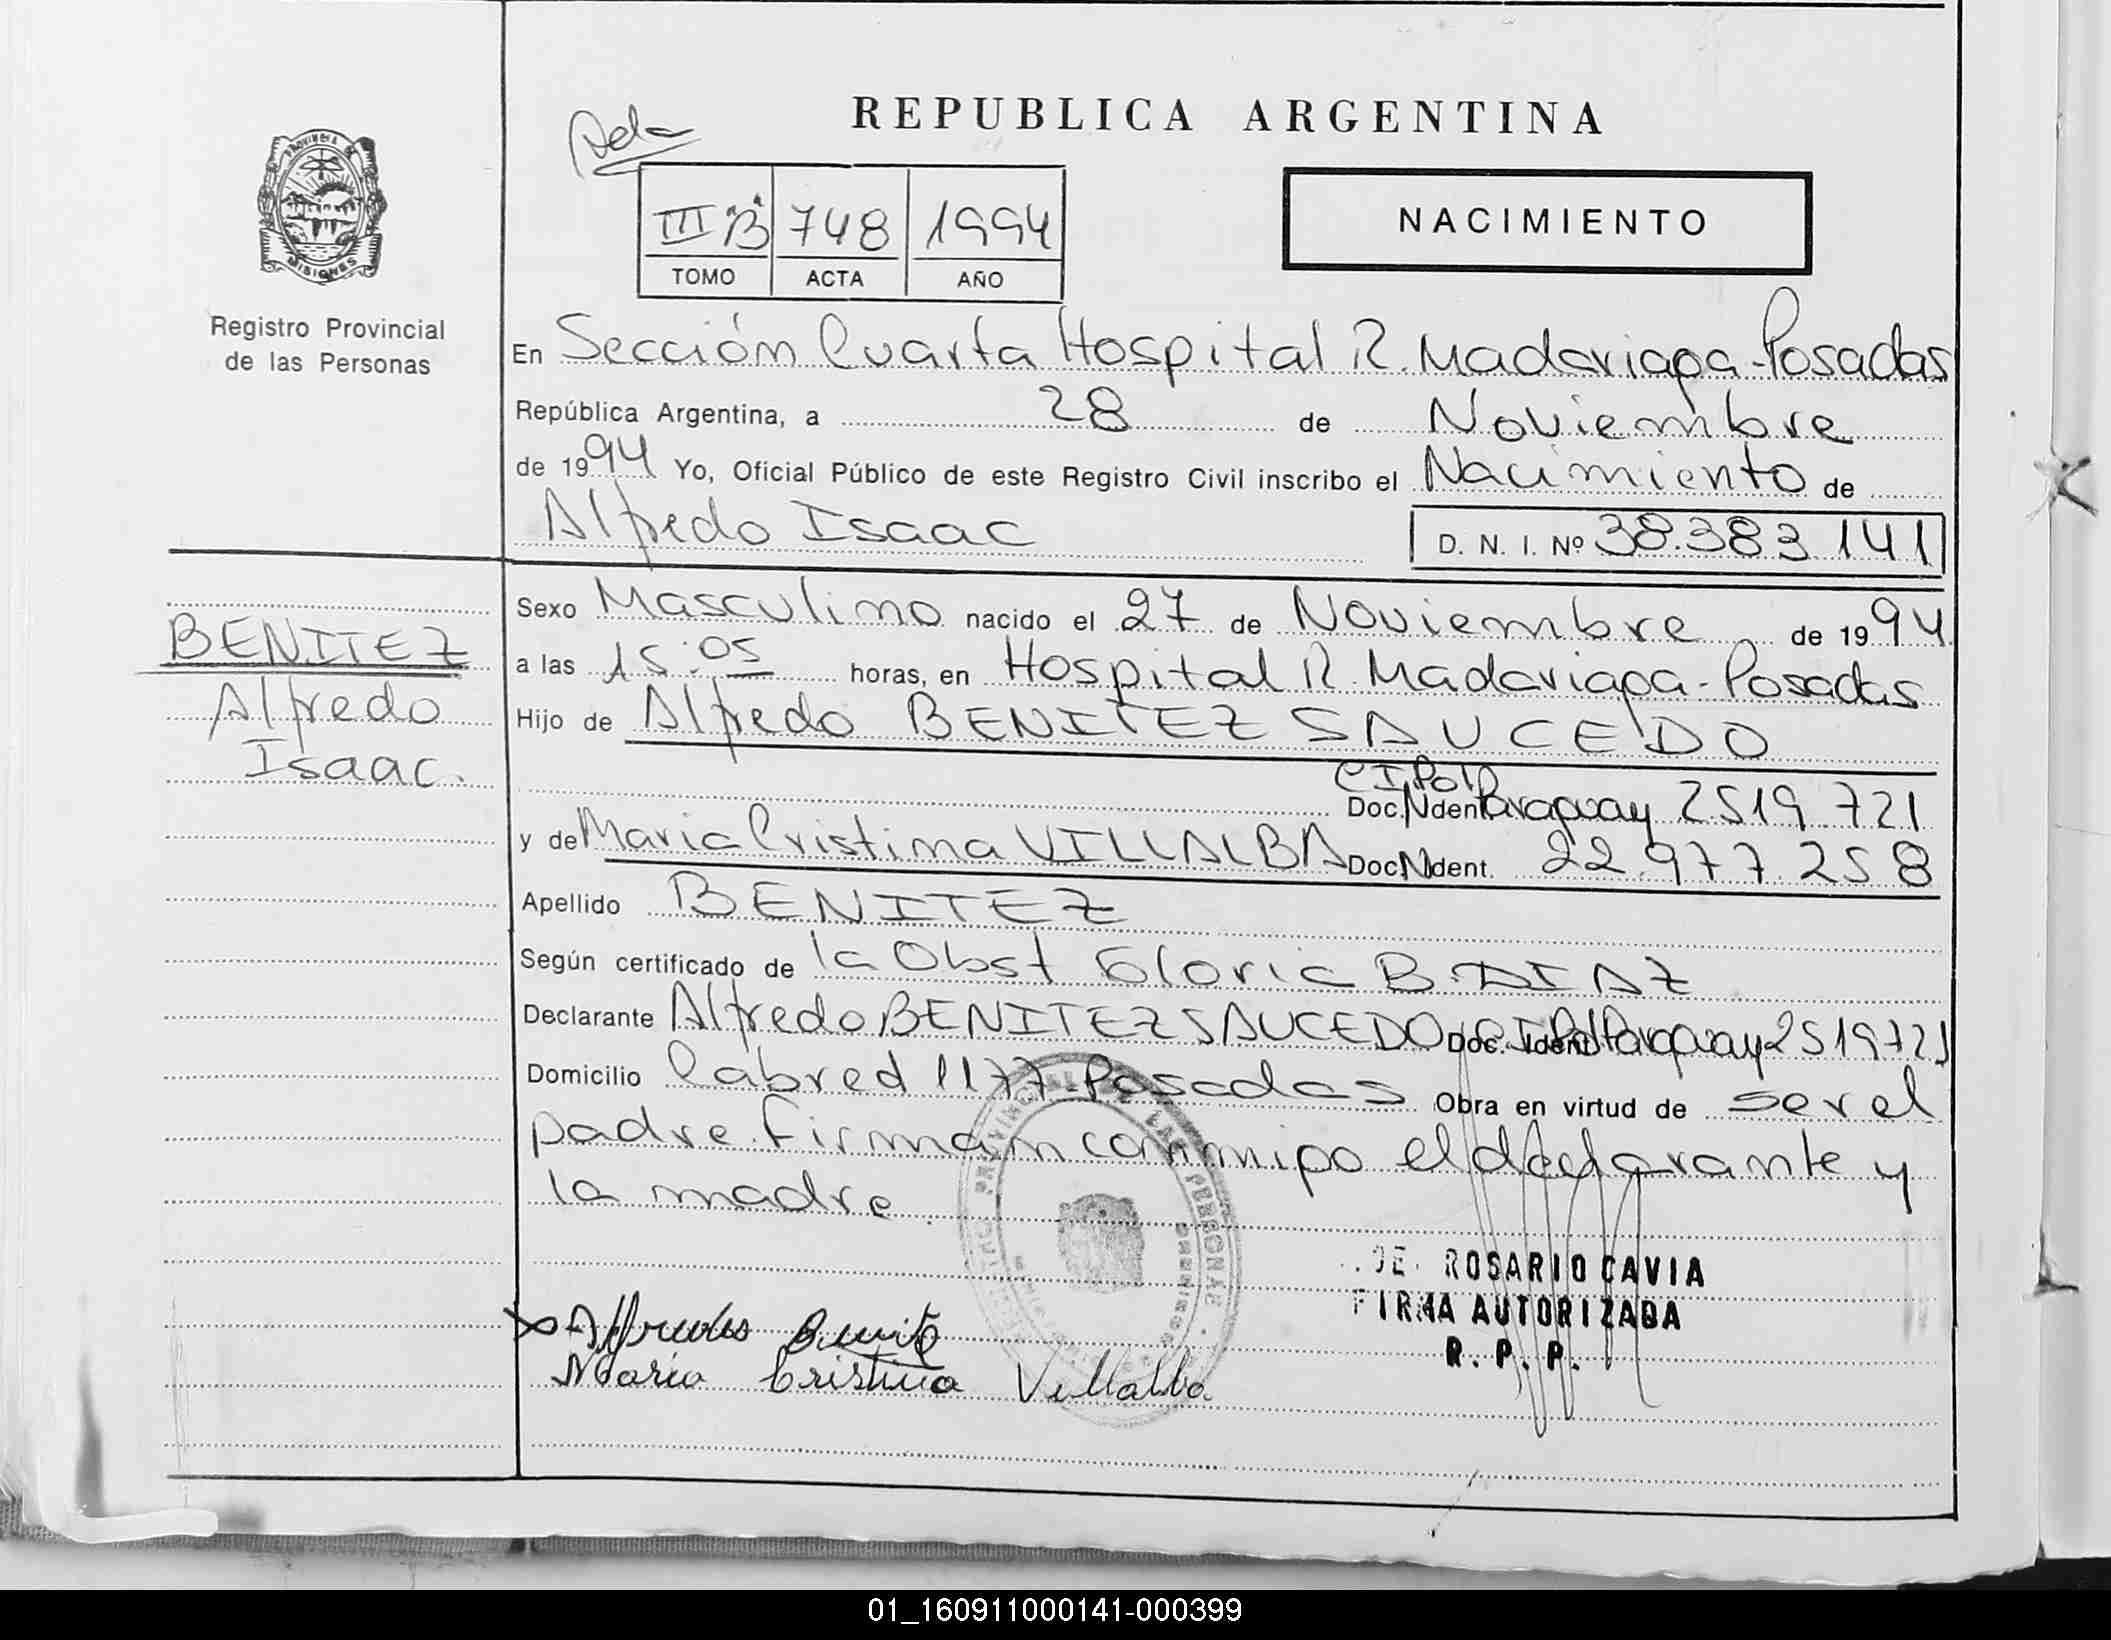 REPUBLICA ARGENTINA
NACIMIENTO
III "B" 748 1994
TOMO ACTA AÑO
PROVINCIA DE
MISIONES
Registro Provincial
de las Personas
En Sección Cuarta Hospital R. Madariaga - Posadas
República Argentina, a 28 de Noviembre
de 1994 Yo, Oficial Público de este Registro Civil inscribo el Nacimiento de
Alfredo Isaac D. N. I. Nº 38.383 141
BENITEZ
Alfredo
Isaac.
Sexo Masculino nacido el 27 de Noviembre de 1994
a las 15:05 horas, en Hospital R. Madariaga - Posadas
Hijo de Alfredo BENITEZ SAUCEDO
C I Pol
Doc. Ident. Paraguay 2519 721
y de Maria Cristina VILLALBA Doc. N Ident. 22.977.258
Apellido BENITEZ
Según certificado de la Obst Gloria B. DIAZ
Declarante Alfredo BENITEZ SAUCEDO Doc. Ident. C I Pol Paraguay 2519721
Domicilio Cabred 1177 - Posadas Obra en virtud de ser el
padre. Firman conmigo el declarante y
la madre.
ROSARIO CAVIA
FIRMA AUTORIZADA
R. P. P.
Alfredo Benite
Maria Cristina Villalba
01_160911000141-000399